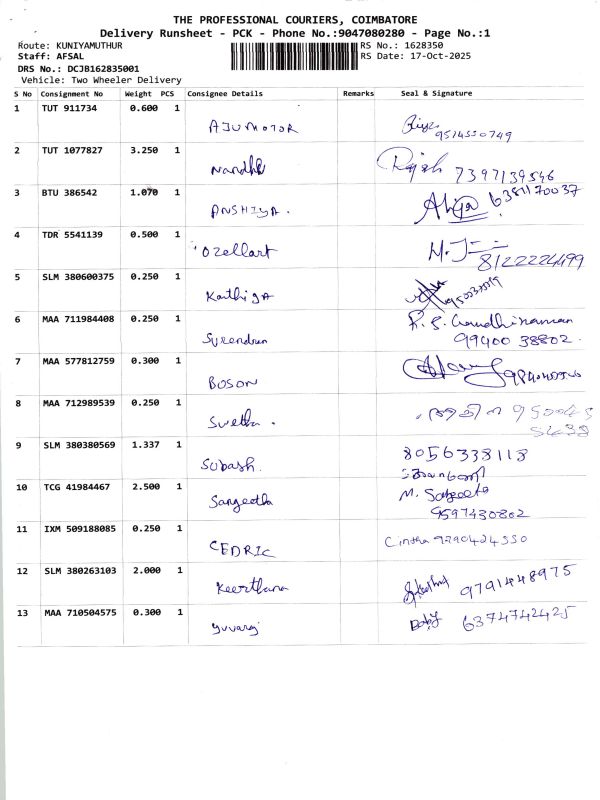 THE PROFESSIONAL COURIERS, COIMBATORE
Delivery Runsheet - PCK - Phone No.:9047080280 - Page No.:1
Route: KUNIYAMUTHUR RS No.: 1628350
Staff: AFSAL RS Date: 17-Oct-2025
DRS No.: DCJB162835001
Vehicle: Two Wheeler Delivery
S No Consignment No Weight PCS Consignee Details Remarks Seal & Signature
1 TUT 911734 0.600 1
AJUMOTOR
9514550749
2 TUT 1077827 3.250 1
Nandhk Rajesh 7397139546
3 BTU 386542 1.070 1
ANSHIYA. 6381170037
4 TDR 5541139 0.500 1
Ozellart M.J
8122224499
5 SLM 380600375 0.250 1
Karthiga
6 MAA 711984408 0.250 1
Surendran 99400 38802.
7 MAA 577812759 0.300 1
BOSON
8 MAA 712989539 0.250 1
Swetha. 95004
9 SLM 380380569 1.337 1
Subash. 8056338118
10 TCG 41984467 2.500 1
Sangeetha M. Sangeetha
9597430802
11 IXM 509188085 0.250 1
CEDRIC Cintha 9790424550
12 SLM 380263103 2.000 1
Keerthana 9791448975
13 MAA 710504575 0.300 1
Yuvaraj Baby 6374742425